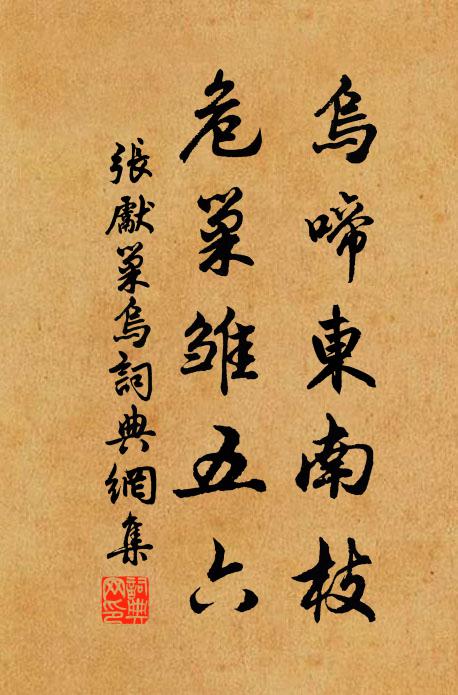 烏啼東南枝
危巢雏五六
張獻巢烏詞典網集
詞典网印